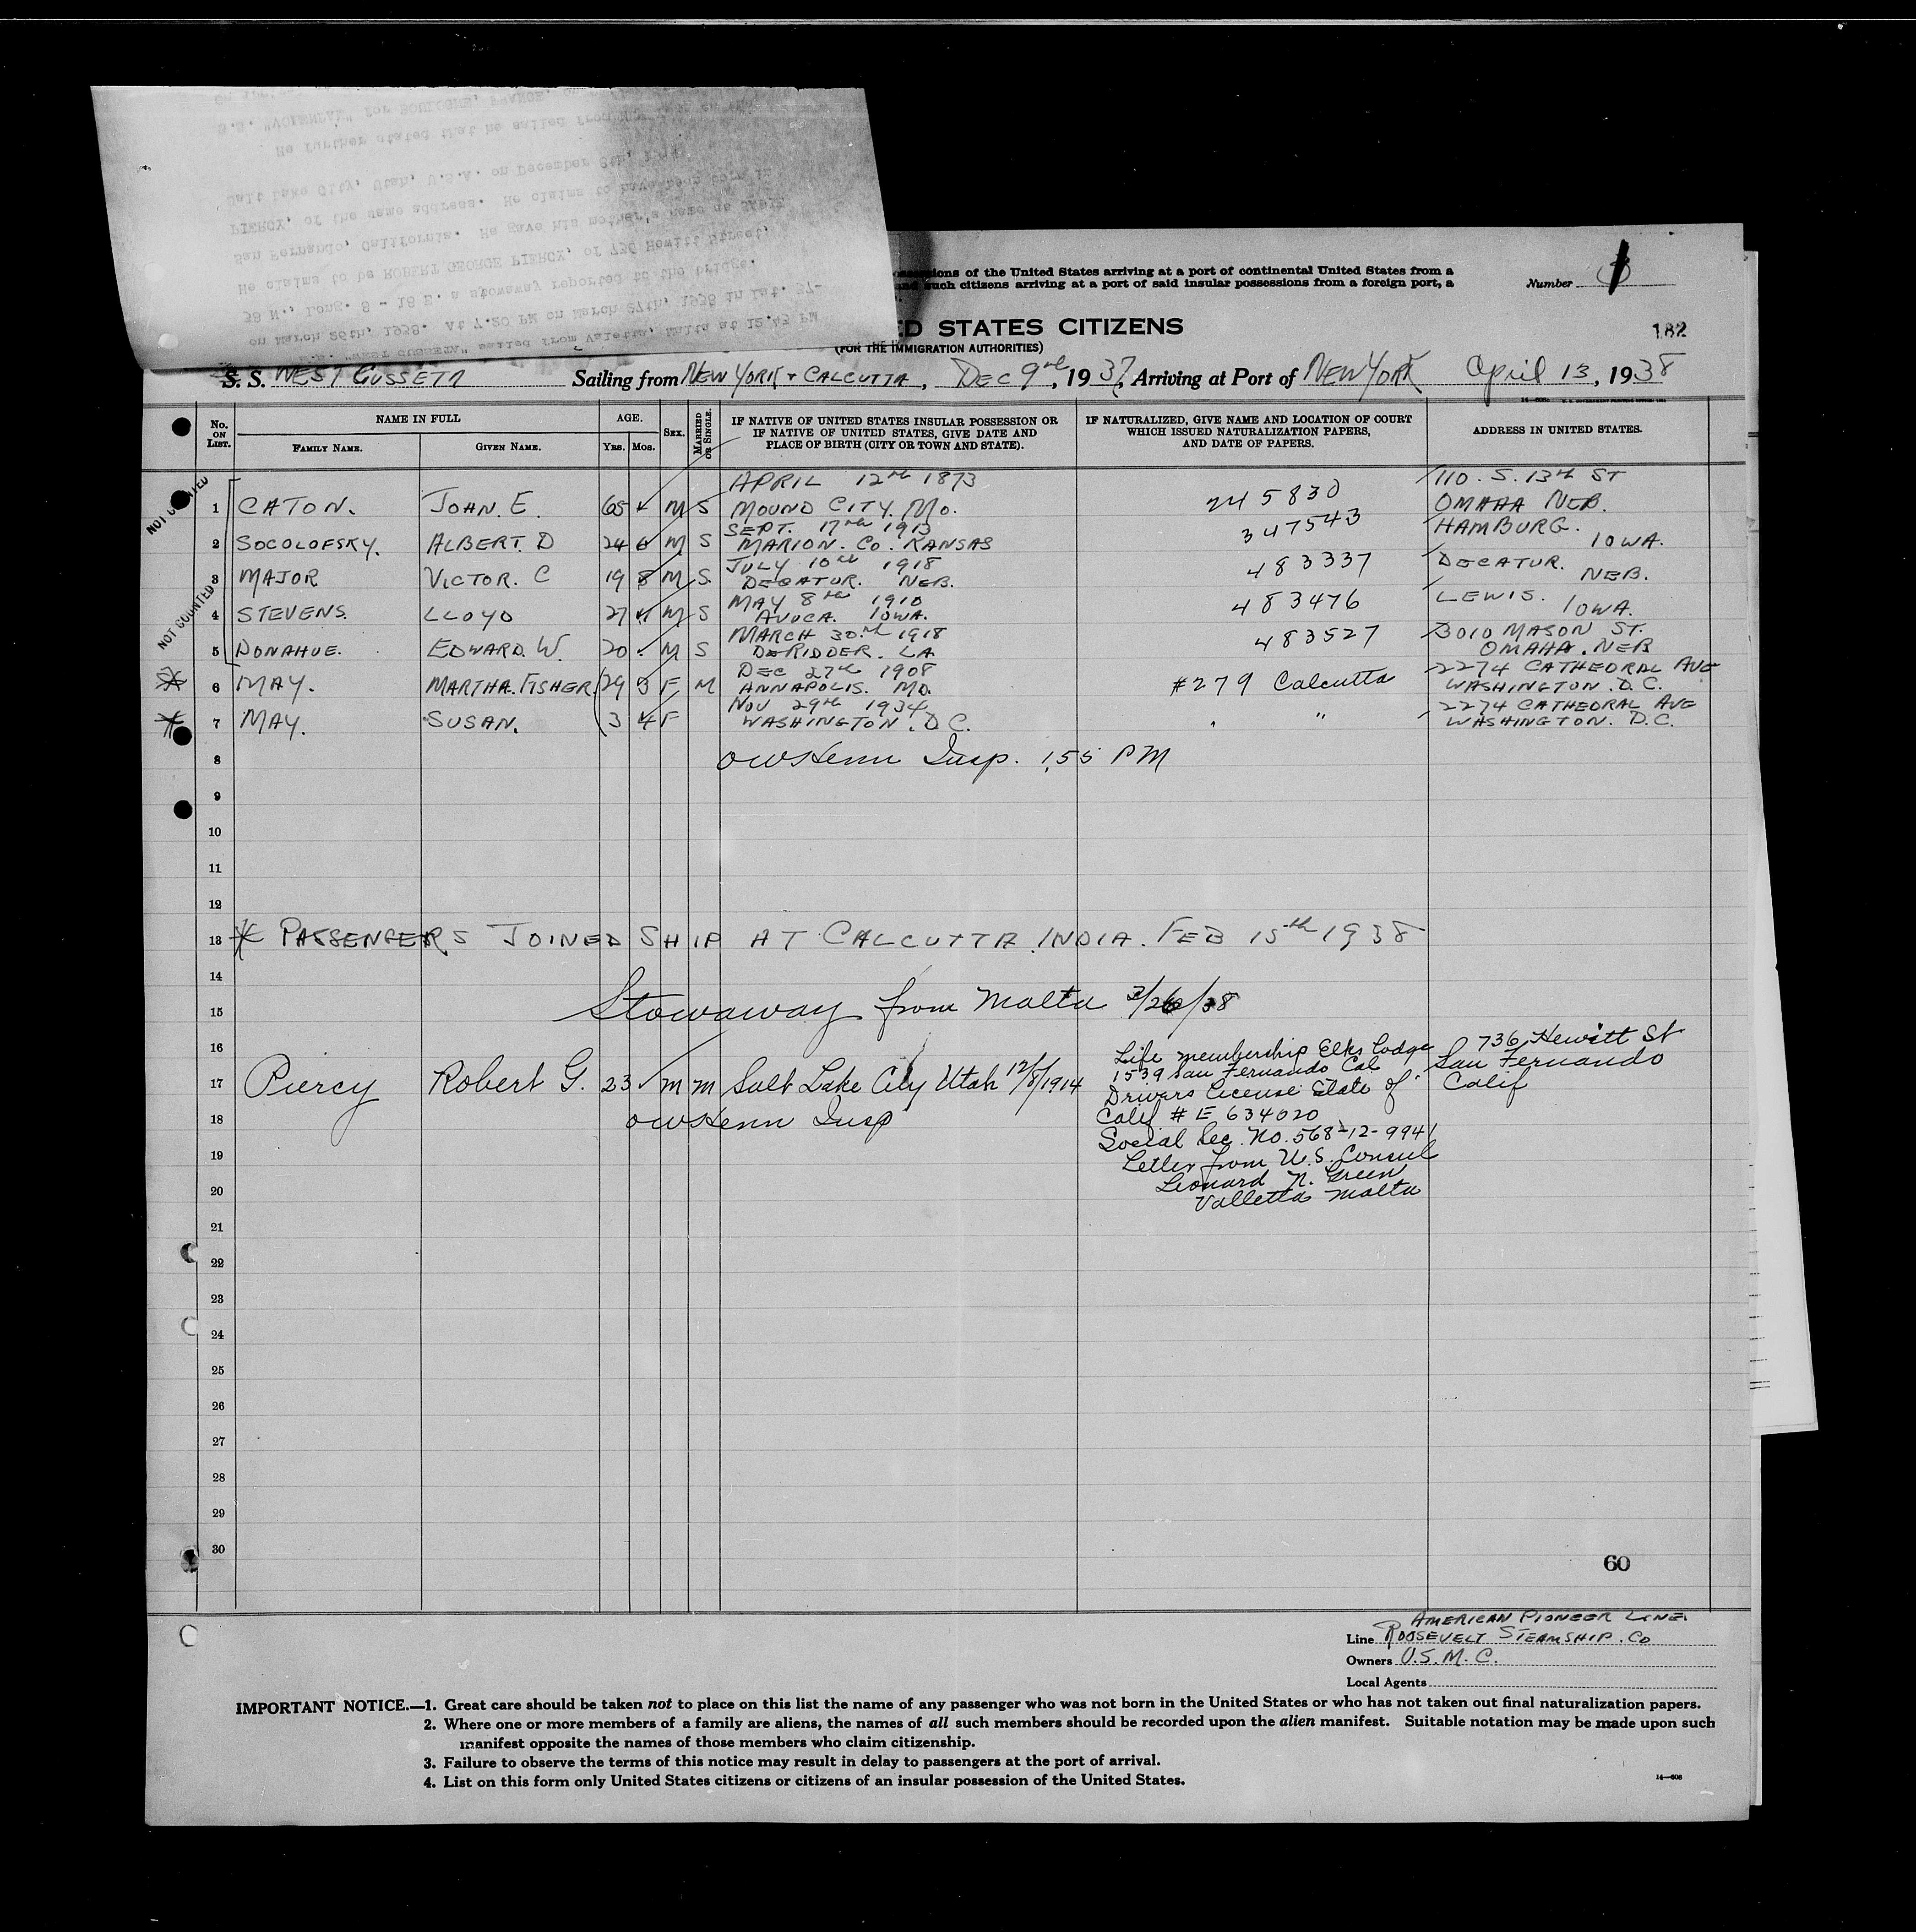 S.S. "WEST CUSSETA" sailed from Valetta, Malta at 12.45 PM
on March 26th, 1938. At 7.20 PM on March 27th, 1938 in Lat. 37-
38 N., Long. 8 - 18 E. a stowaway reported to the bridge.
He claims to be ROBERT GEORGE PIERCY, of 736 Hewitt Street,
San Fernando, California. He gave his mother's name as
PIERCY, of the same address. He claims to have been born in
Salt Lake City, Utah, U.S.A. on December 8th,
He further stated that he sailed from
S.S. "VOLENDAM" for BOULOGNE, FRANCE,
possessions of the United States arriving at a port of continental United States from a
and such citizens arriving at a port of said insular possessions from a foreign port, a
Number
ED STATES CITIZENS
182
(FOR THE IMMIGRATION AUTHORITIES)
S. S. WEST CUSSETA Sailing from NEW YORK + CALCUTTA, DEC 9th, 1937, Arriving at Port of NEW YORK April 13, 1938
No. ON LIST.
NAME IN FULL
FAMILY NAME.
GIVEN NAME.
AGE.
YRS. MOS.
SEX.
MARRIED OR SINGLE.
IF NATIVE OF UNITED STATES INSULAR POSSESSION OR
IF NATIVE OF UNITED STATES, GIVE DATE AND
PLACE OF BIRTH (CITY OR TOWN AND STATE).
IF NATURALIZED, GIVE NAME AND LOCATION OF COURT
WHICH ISSUED NATURALIZATION PAPERS,
AND DATE OF PAPERS.
ADDRESS IN UNITED STATES.
NOT COUNTED
APRIL 12th 1873 110. S. 13th ST
1 CATON. JOHN. E. 65 M S MOUND CITY. MO. 245830 OMAHA NEB.
SEPT. 17th 1913 HAMBURG.
2 SOCOLOFSKY. ALBERT. D 24 6 M S MARION. CO. KANSAS 347543 IOWA.
JULY 10th 1918 DECATUR.
3 MAJOR VICTOR. C 19 8 M S. DECATUR. NEB. 483337 NEB.
NOT COUNTED
MAY 8th 1910 LEWIS.
4 STEVENS. LLOYD 27 11 M S AVOCA. IOWA. 483476 IOWA.
MARCH 30th 1918 3010 MASON ST.
5 DONAHUE. EDWARD. W. 20 M S DERIDDER. LA 483527 OMAHA. NEB
DEC 27th 1908 2274 CATHEDRAL AVE
6 MAY. MARTHA. FISHER. 29 3 F M ANNAPOLIS. MD. #279 Calcutta WASHINGTON. D.C.
NOV 29th 1934 2274 CATHEDRAL AVE
7 MAY. SUSAN. 3 4 F WASHINGTON. D.C. " WASHINGTON. D.C.
8 Insp. 1.55 PM
9
10
11
12
13 * PASSENGERS JOINED SHIP AT CALCUTTA. INDIA. FEB 15th 1938
14
15 Stowaway from Malta 3/26/38
16
17 Piercy Robert G. 23 m m Salt Lake City Utah 12/8/1914
Life membership Elks Lodge
1539 San Fernando Cal
Drivers License State of
Calif # E 634020
Social Sec. No. 568-12-9941
Letter from U.S. Consul
Leonard N. Green
Valletta Malta
736 Hewitt St
San Fernando
Calif
18 Insp
19
20
21
22
23
24
25
26
27
28
29
30
60
AMERICAN PIONEER LINE
Line ROOSEVELT STEAMSHIP. CO
Owners U.S.M.C.
Local Agents
IMPORTANT NOTICE.—1. Great care should be taken not to place on this list the name of any passenger who was not born in the United States or who has not taken out final naturalization papers.
2. Where one or more members of a family are aliens, the names of all such members should be recorded upon the alien manifest. Suitable notation may be made upon such
manifest opposite the names of those members who claim citizenship.
3. Failure to observe the terms of this notice may result in delay to passengers at the port of arrival.
4. List on this form only United States citizens or citizens of an insular possession of the United States.